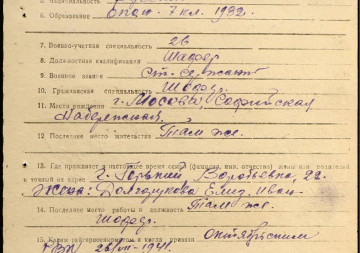 4. Образование 7 кл. 1932.
7. Военно-учетная специальность 26
8. Должностная квалификация Шофер
9. Военное звание Ст. сержант
10. Гражданская специальность Шофер.
11. Место рождения г. Москва, Софийская
Набережная.
12. Последнее место жительства Там же.
13. Где проживает в настоящее время семья (фамилия, имя, отчество) жены или родителей
и точный их адрес г. Горький Воробьевка, 22.
Жена: Долгорукова Елиз. Иван.
14. Последнее место работы и должность Там же.
Шофер.
15. Каким райгорвоенкоматом и когда призван Октябрьским
РВК 26/VII-1941.